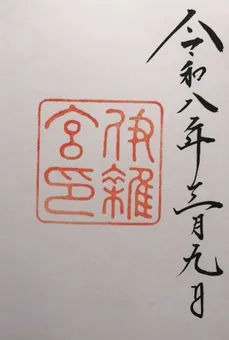 令和八年三月九日
伊雜
宮印